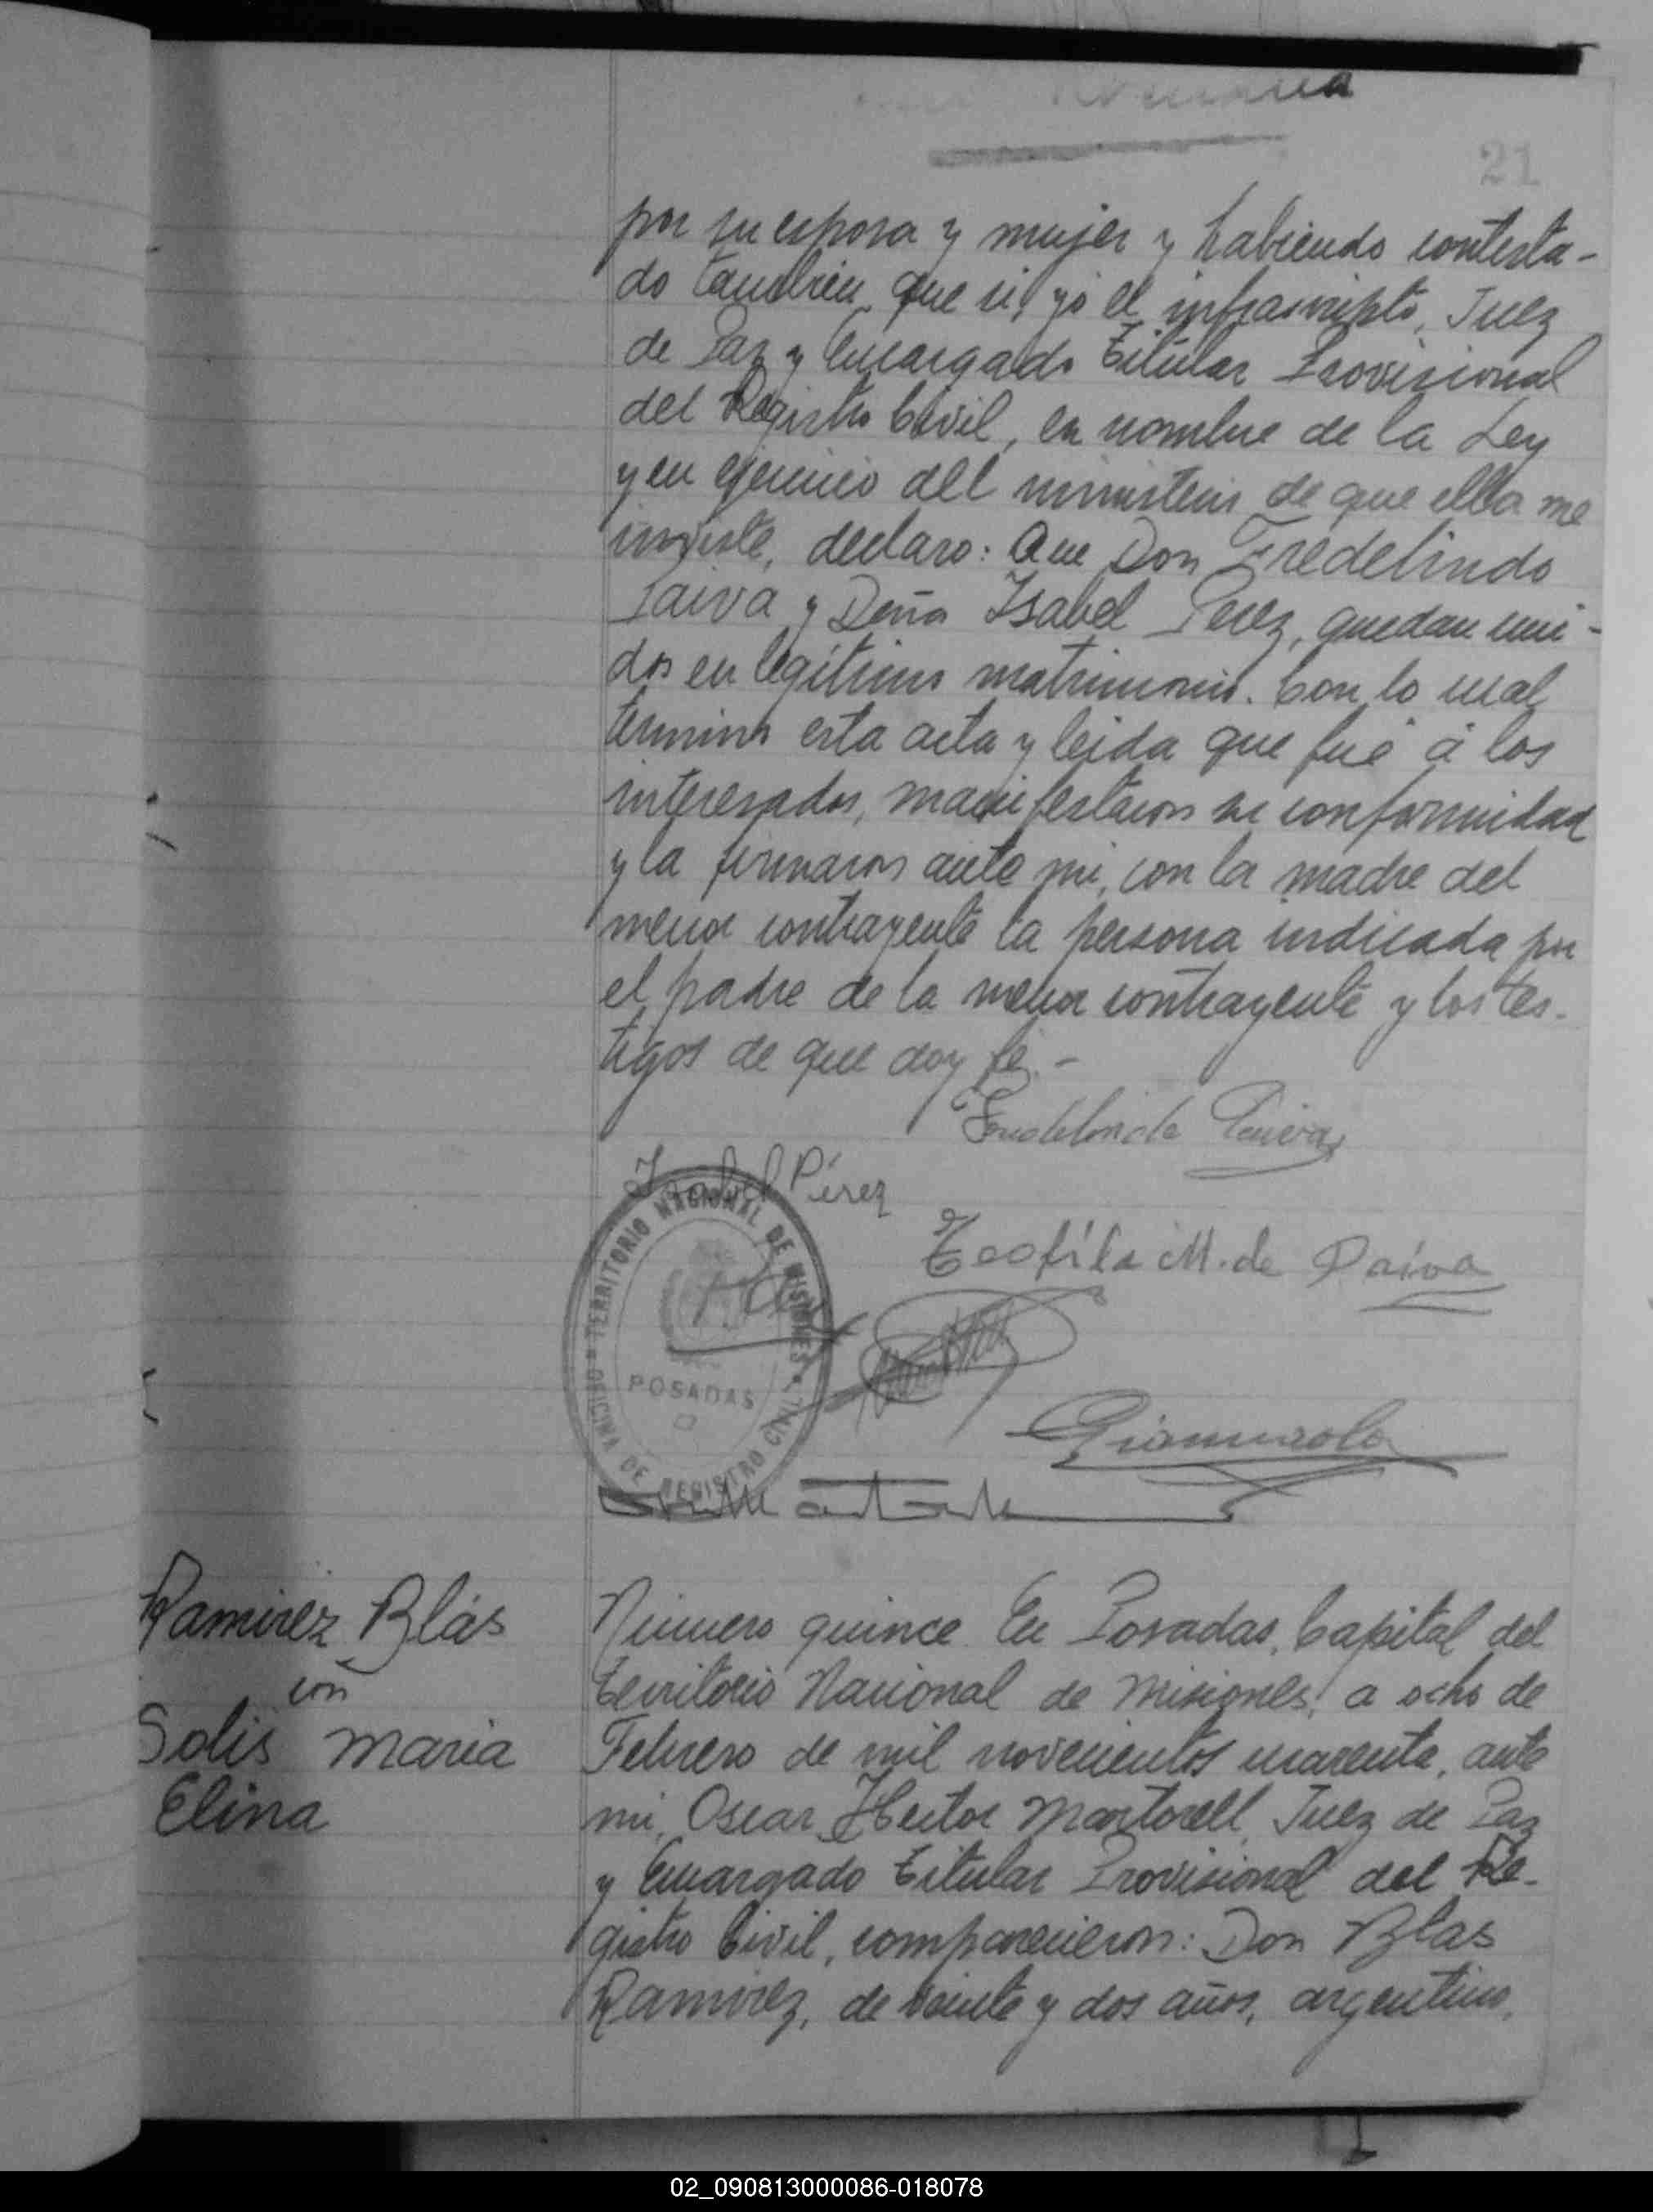 21
por su esposa y mujer y habiendo contesta-
do tambien que si, yo el infrascripto, Juez
de Paz y Encargado Titular Provisional
del Registro Civil, en nombre de la Ley
y en ejercicio del ministerio de que ella me
inviste, declaro: Que Don Fredelindo
Paiva y Doña Isabel Perez, quedan uni-
dos en legítimo matrimonio. Con lo cual
termino esta acta y leida que fué á los
interesados, manifestaron su conformidad
y la firmaron ante mi, con la madre del
menor contrayente la persona indicada por
el padre de la menor contrayente y los tes-
tigos de que doy fé.-
Fredelindo Paiva
Isabel Pérez
Teofila M. de Paiva
TERRITORIO NACIONAL DE MISIONES
POSADAS
OFICINA DE REGISTRO CIVIL
Ramirez Blás
con
Solis Maria
Elina
Número quince. En Posadas, Capital del
Territorio Nacional de Misiones, a ocho de
Febrero de mil novecientos cuarenta, ante
mi, Oscar Hector Martorell, Juez de Paz
y Encargado Titular Provisional del Re-
gistro Civil, comparecieron: Don Blas
Ramirez, de veinte y dos años, argentino,
02_090813000086-018078